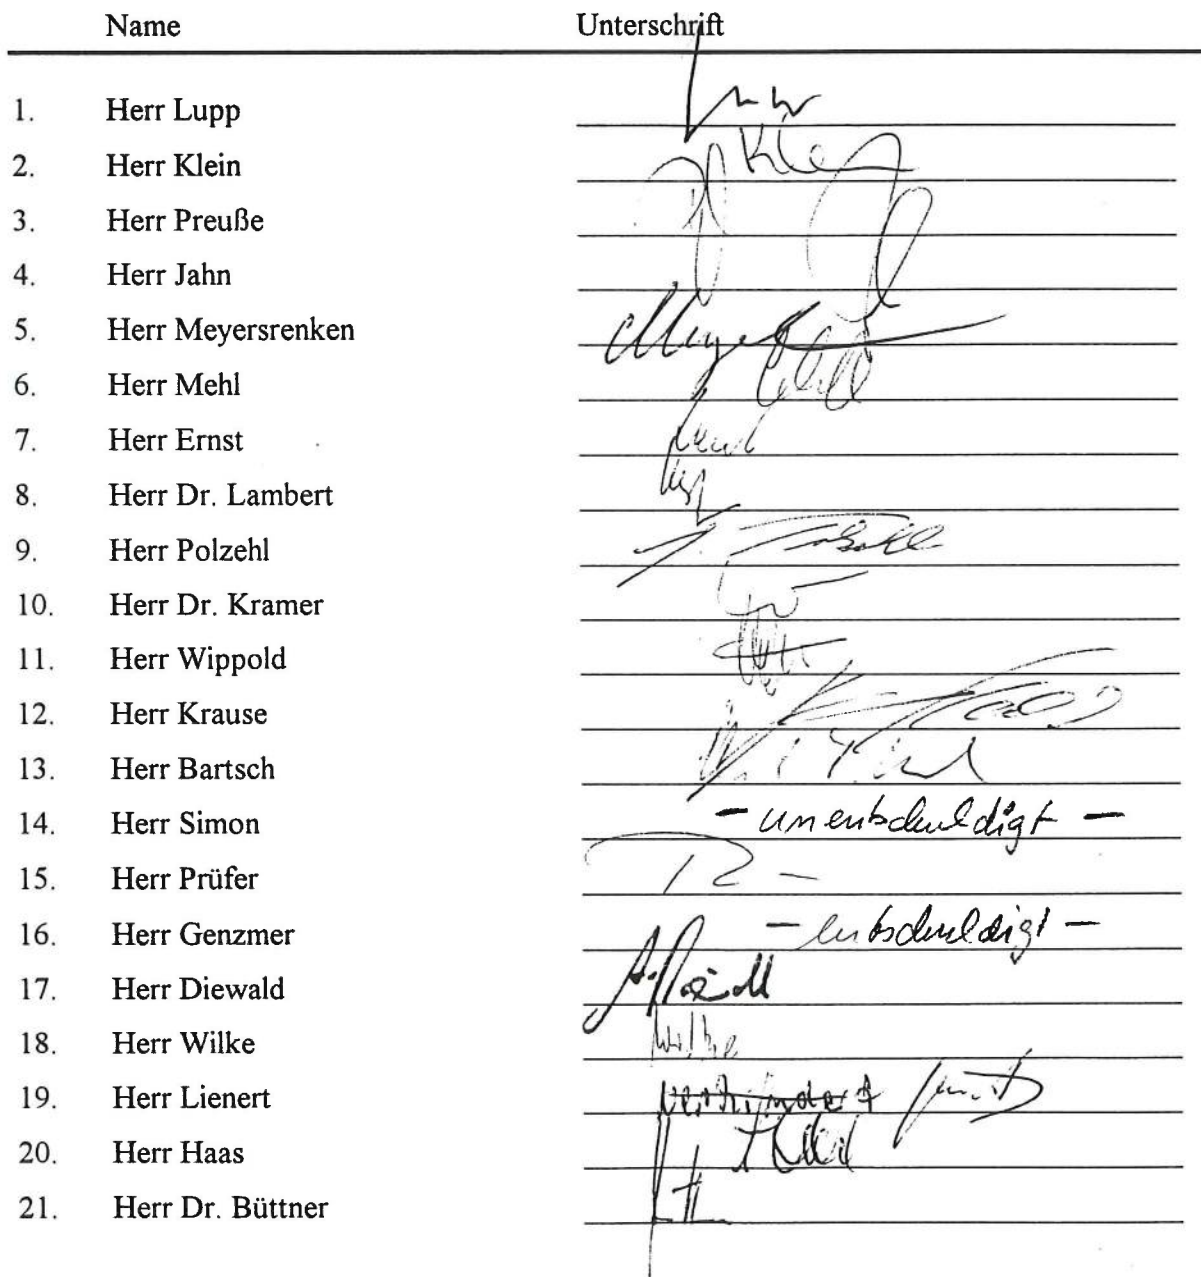 Name Unterschrift
1. Herr Lupp
2. Herr Klein Klein
3. Herr Preuße
4. Herr Jahn
5. Herr Meyersrenken
6. Herr Mehl
7. Herr Ernst
8. Herr Dr. Lambert
9. Herr Polzehl
10. Herr Dr. Kramer
11. Herr Wippold
12. Herr Krause
13. Herr Bartsch
14. Herr Simon - unentschuldigt -
15. Herr Prüfer
16. Herr Genzmer - entschuldigt -
17. Herr Diewald
18. Herr Wilke Wilke
19. Herr Lienert verhindert
20. Herr Haas
21. Herr Dr. Büttner